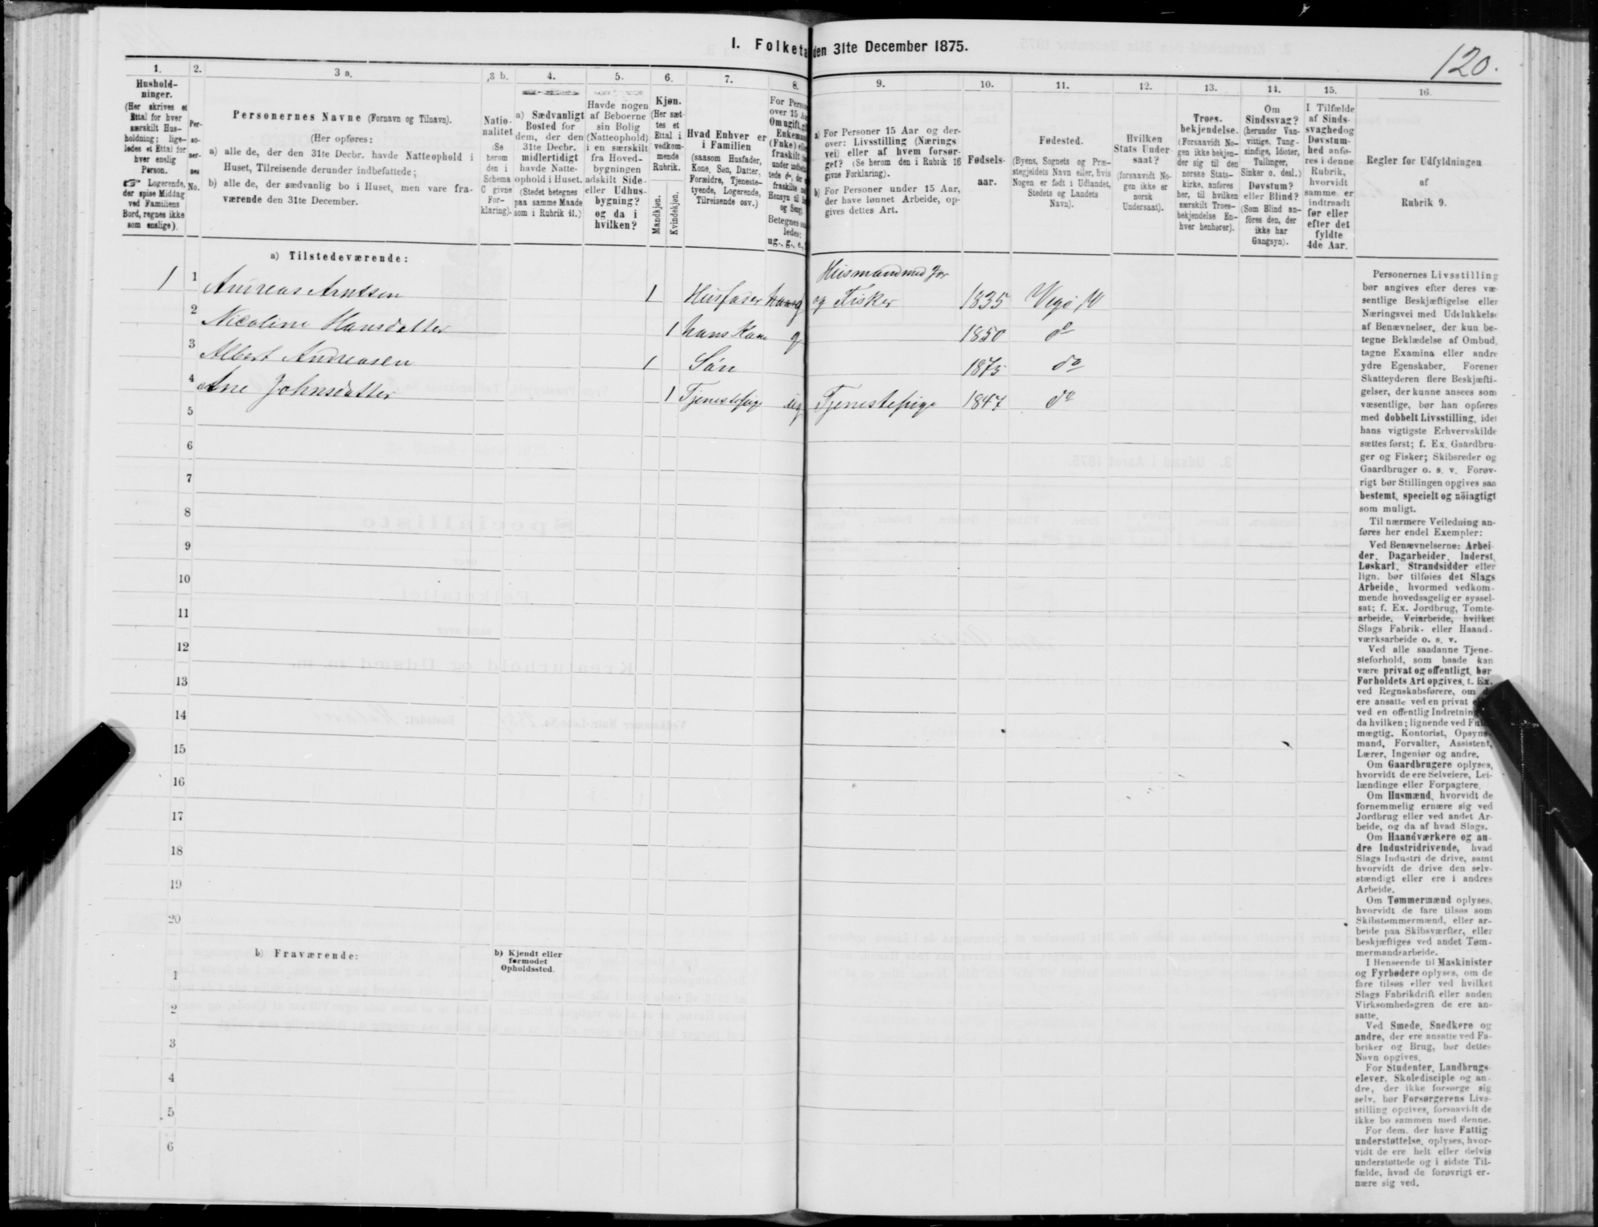 I. Folketa den 31te December 1875.
120.
1.
Hushold-
ninger.
(Her skrives et
Ettal for hver
særskilt Hus-
holdning; lige-
ledes et Ettal for
hver enslig
Person.
Logerende,
der spise Middag
ved Familiens
Bord, regnes ikke
som enslige).
2.
Per-
so-
ner-
nes
No.
3 a.
Personernes Navne (Fornavn og Tilnavn).
(Her opføres:
a) alle de, der den 31te Decbr. havde Natteophold i
Huset, Tilreisende derunder indbefattede;
b) alle de, der sædvanlig bo i Huset, men vare fra-
værende den 31te December.
3 b.
Natio-
nalitet
(Se
herom
den i
Schema
C givne
For-
klaring).
4.
a) Sædvanligt
Bosted for
dem, der den
31te Decbr.
midlertidigt
havde Natte-
ophold i Huset.
(Stedet betegnes
paa samme Maade
som i Rubrik 11.)
5.
Havde nogen
af Beboerne
sin Bolig
(Natteophold)
i en særskilt
fra Hoved-
bygningen
adskilt Side-
eller Udhus-
bygning?
og da i
hvilken?
6.
Kjøn.
(Her sæt-
tes et
Ettal i
vedkom-
mende
Rubrik.
Mandkjøn.
Kvindekjøn.
7.
Hvad Enhver er
i Familien
(saasom Husfader,
Kone, Søn, Datter,
Forældre, Tjeneste-
tyende, Logerende,
Tilreisende osv.)
8.
9.
a) For Personer 15 Aar og der-
over: Livsstilling (Nærings-
vei) eller af hvem forsør-
get? (Se herom den i Rubrik 16
givne Forklaring).
b) For Personer under 15 Aar,
der have lønnet Arbeide, op-
gives dettes Art.
10.
Fødsels-
aar.
11.
Fødested.
(Byens, Sognets og Præ-
stegjeldets Navn eller, hvis
Nogen er født i Udlandet,
Stedets og Landets
Navn).
12.
Hvilken
Stats Under-
saat?
(forsaavidt No-
gen ikke er
norsk
Undersaat).
13.
Troes-
bekjendelse.
(Forsaavidt No-
gen ikke bekjen-
der sig til den
norske Stats-
kirke, anføres
her, til hvilken
særskilt Troes-
bekjendelse En-
hver henhører).
14.
Om
Sindssvag?
(herunder Van-
vittige, Tung-
sindige, Idioter,
Tullinger,
Sinker o. desl.)
Døvstum?
eller Blind?
(Som Blind an-
føres den, der
ikke har
Gangsyn).
15.
I Tilfælde
af Sinds-
svaghed og
Døvstum-
hed anfø-
res i denne
Rubrik,
hvorvidt
samme er
indtraadt
før eller
efter det
fyldte
4de Aar.
16.
Regler før Udfyldningen
af
Rubrik 9.
a) Tilstedeværende:
1 1 Andreas Arntsen 1 Husfader g Huismand med Jor
og Fisker 1835 Vegø
2 Nicoline Hansdatter 1 hans Kone g 1850 do
3 Albert Andreasen 1 Søn 1875 do
4 Ane Johnsdatter 1 Tjenestepige ug Tjenestepige 1847 do
5
6
7
8
9
10
11
12
13
14
15
16
17
18
19
20
b) Fraværende:
b) Kjendt eller
formodet
Opholdssted.
1
2
3
4
5
6
Personernes Livsstilling
bør angives efter deres væ-
sentlige Beskjæftigelse eller
Næringsvei med Udelukkelse
af Benævnelser, der kun be-
tegne Beklædelse af Ombud,
tagne Examina eller andre
ydre Egenskaber. Forener
Skatteyderen flere Beskjæfti-
gelser, der kunne ansees som
væsentlige, bør han opføres
med dobbelt Livsstilling, idet
hans vigtigste Erhvervskilde
sættes først; f. Ex. Gaardbru-
ger og Fisker; Skibsreder og
Gaardbruger o. s. v. Forøv-
rigt bør Stillingen opgives saa
bestemt, specielt og nöiagtigt
som muligt.
Til nærmere Veiledning an-
føres her endel Exempler:
Ved Benævnelserne: Arbei-
der, Dagarbeider, Inderst,
Løskarl, Strandsidder eller
lign. bør tilføies det Slags
Arbeide, hvormed vedkom-
mende hovedsagelig er syssel-
sat; f. Ex. Jordbrug, Tomte-
arbeide, Veiarbeide, hvilket
Slags Fabrik- eller Haand-
værksarbeide o. s. v.
Ved alle saadanne Tjene-
steforhold, som baade kan
være privat og offentligt, bør
Forholdets Art opgives, f. Ex.
ved Regnskabsførere, om de
ere ansatte ved en privat
ved en offentlig Indretning
da hvilken; lignende ved
mægtig, Kontorist, Opsyns-
mand, Forvalter, Assistent,
Lærer, Ingeniør og andre.
Om Gaardbrugere oplyses,
hvorvidt de ere Selveiere, Lei-
lændinge eller Forpagtere.
Om Husmænd, hvorvidt de
fornemmelig ernære sig ved
Jordbrug eller ved andet Ar-
beide, og da af hvad Slags.
Om Haandværkere og an-
dre Industridrivende, hvad
Slags Industri de drive, samt
hvorvidt de drive den selv-
stændigt eller ere i andres
Arbeide.
Om Tømmermænd oplyses,
hvorvidt de fare tilsøs som
Skibstømmermænd, eller ar-
beide paa Skibsværfter, eller
beskjæftiges ved andet Tøm-
mermandsarbeide.
I Henseende til Maskinister
og Fyrbødere oplyses, om de
fare tilsøs eller ved hvilket
Slags Fabrikdrift eller anden
Virksomhedsgren de ere an-
satte.
Ved Smede, Snedkere og
andre, der ere ansatte ved Fa-
briker og Brug, bør dettes
Navn opgives.
For Studenter, Landbrugs-
elever, Skoledisciple og an-
dre, der ikke forsørge sig
selv, bør Forsørgerens Livs-
stilling opgives, forsaavidt de
ikke bo sammen med denne.
For dem, der have Fattig-
understøttelse, oplyses, hvor-
vidt de ere helt eller delvis
understøttede og i sidste Til-
fælde, hvad de forøvrigt er-
nære sig ved.